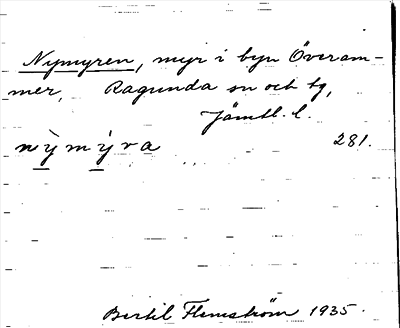 Nymyren, myr i byn Överam-
mer, Ragunda sn och tg,
Jämtl. l.
nỳmỳra 281.
Bertil Flemström 1935.